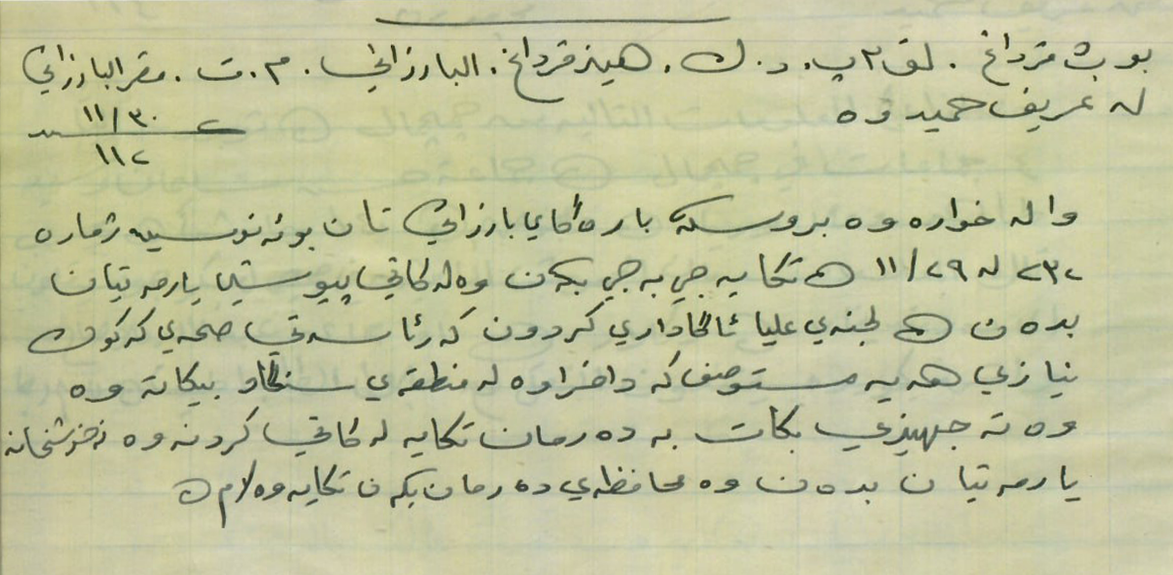 بو بەش قرداغ . لق ٣ پ . د . ك . هیز قرداغ . البارزاني . م . ت . مقر البارزاني
لە عریف حمید وە
١١/٣٠
١١٢
وا لە خوارە وە بروسكە بارەگای بارزاني تان بو ئە نوسیە ژمارە
٢٣٠ لە ١١/٢٩ ە تكایە جي بە جي بكەن وە لە كاتي پیوستیا یارمەتیان
بدەن ە لجنەي علیا ئاگاداري كردون كە رئاسەتي صحەي كركوك
نیازي هەیە مستوصف كە داخراوە لە منطقەي سنگاو بیكاتە وە
وە تە جهیزي بكات بە دە رمان تكایە لە كاتي كردنە وە نەخوشخانە
یارمەتیان بدەن وە محافظەي دە رمان بكەن تكایە وەلام ە